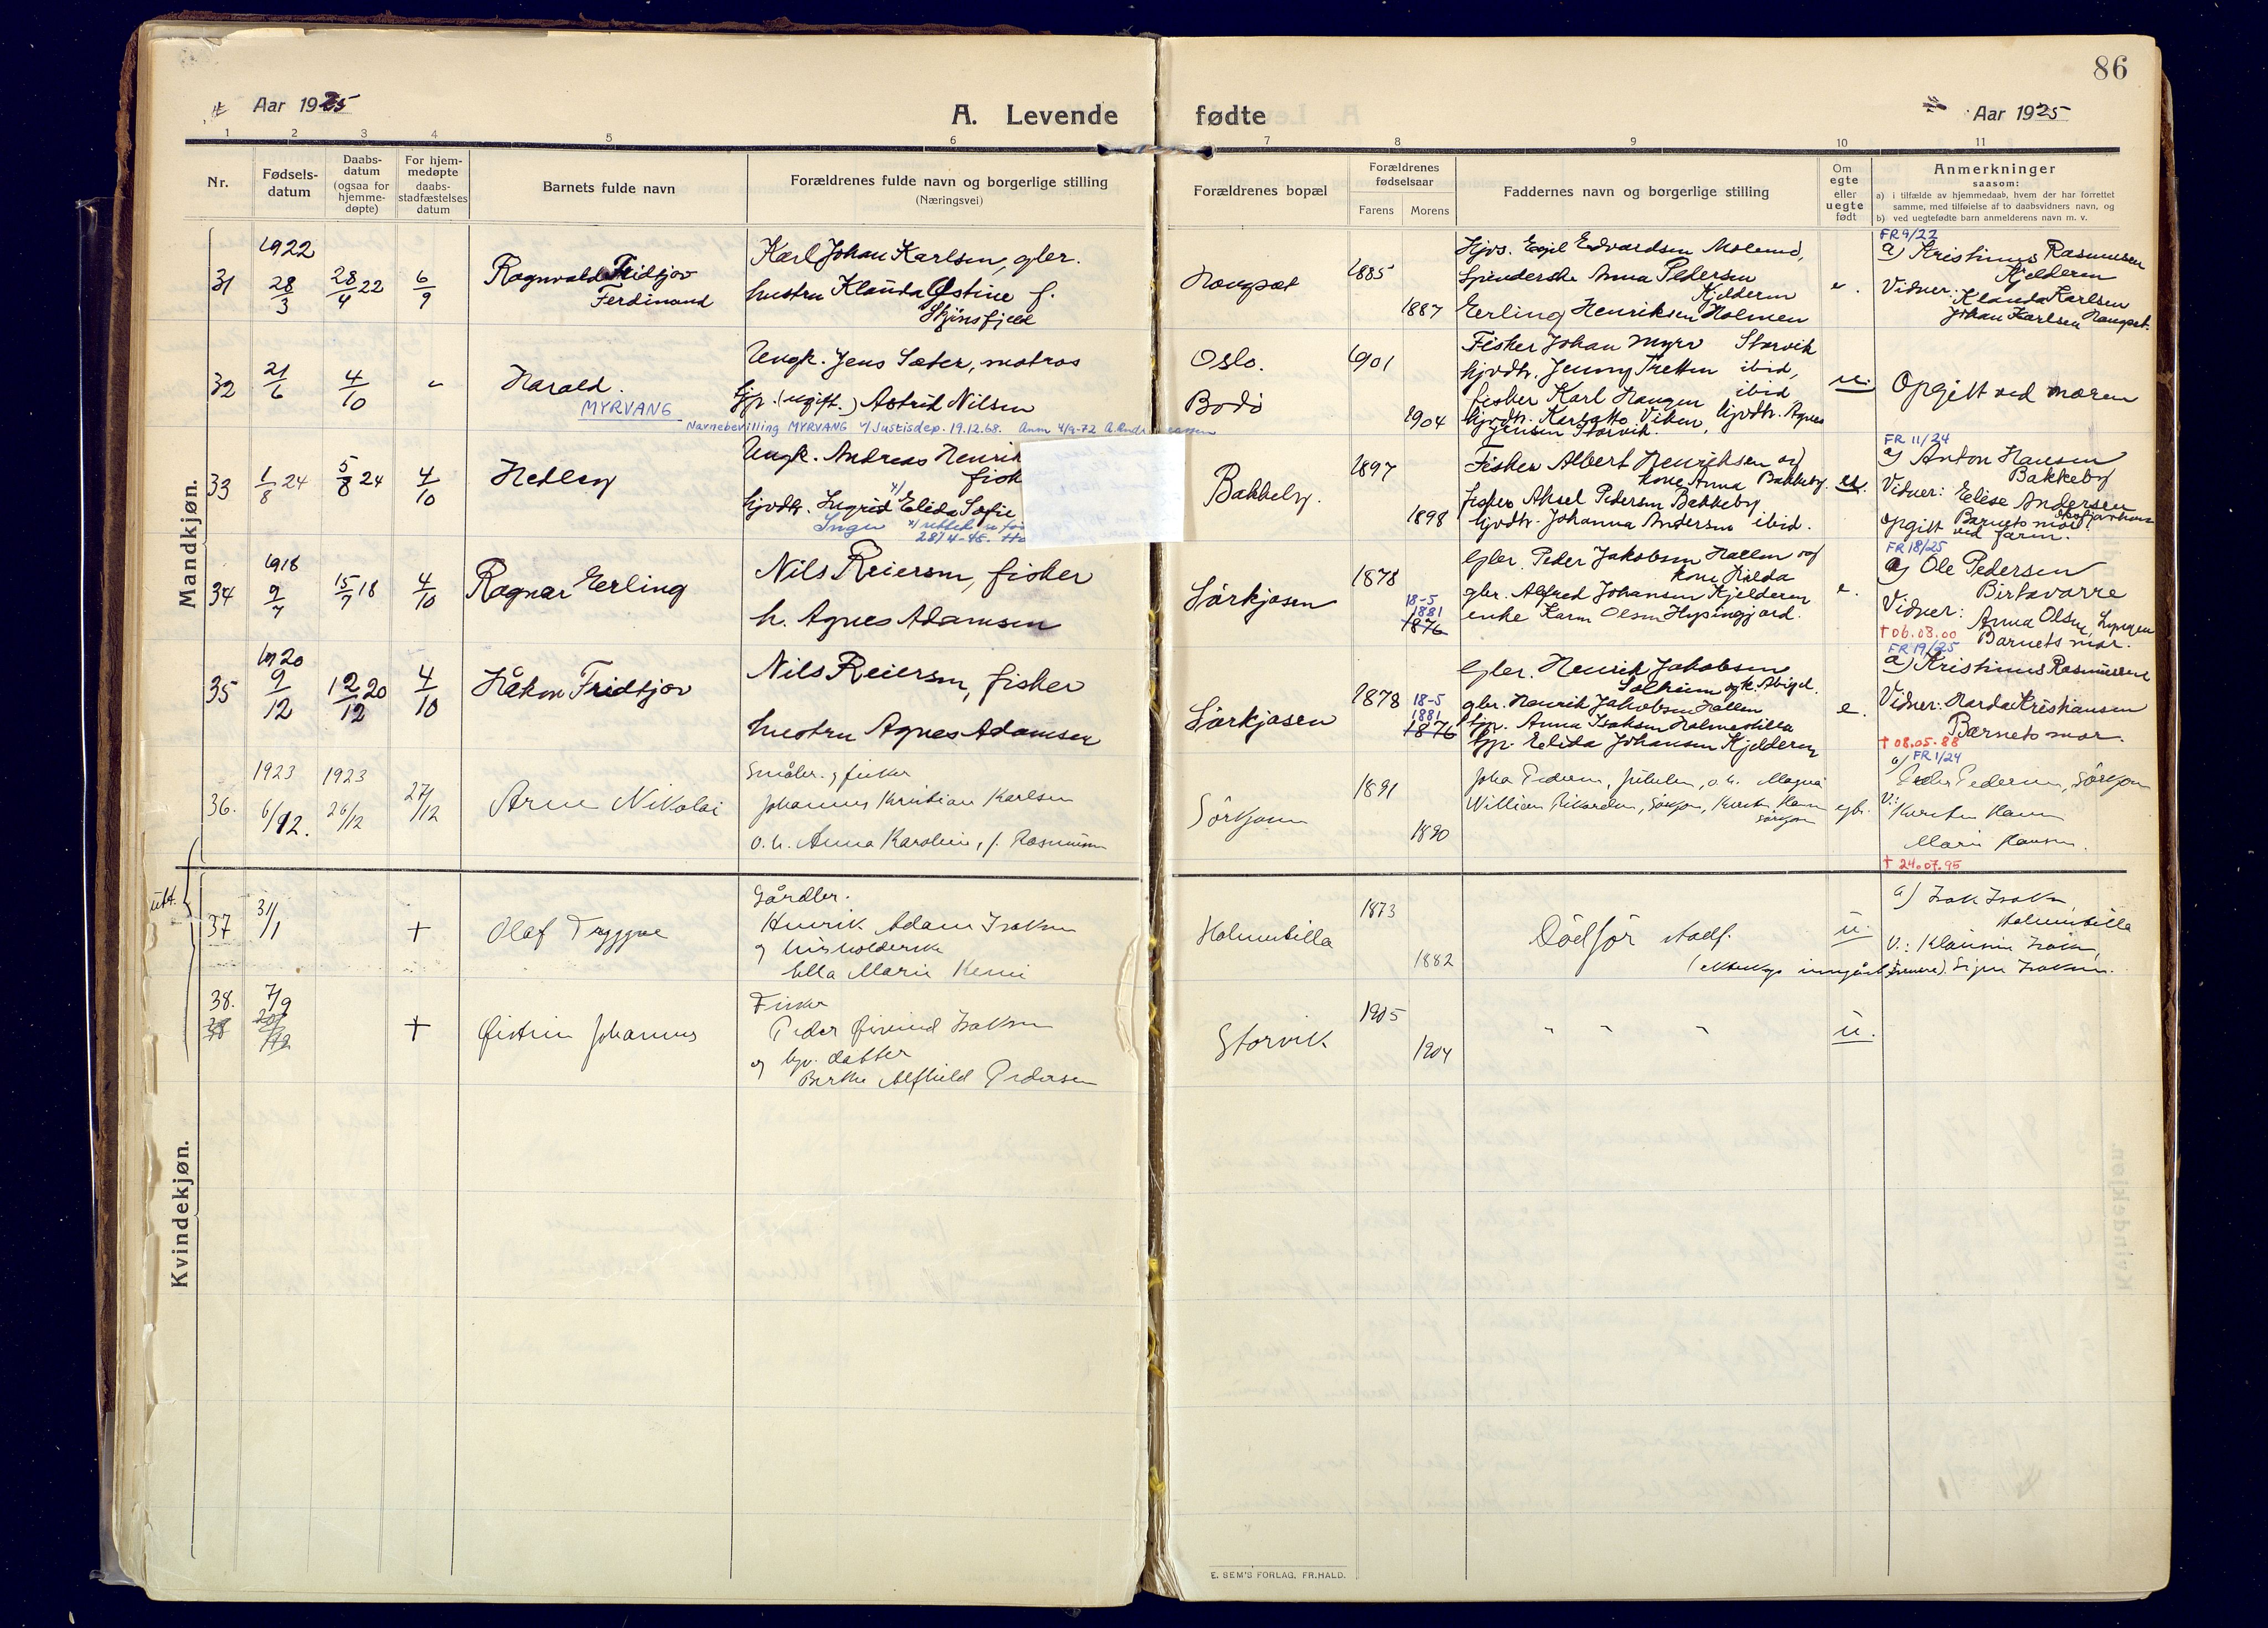 86
Aar 1925
A. Levende fødte
Aar 1925
1 2 3 4 5 6 7 8 9 10 11
Nr.
Fødsels-
datum
Daabs-
datum
(ogsaa for
hjemme-
døpte)
For hjem-
medøpte
daabs-
stadfæstelses
datum
Barnets fulde navn
Forældrenes fulde navn og borgerlige stilling
(Næringsvei)
Forældrenes bopæl
Forældrenes
fødselsaar
Farens Morens
Faddernes navn og borgerlige stilling
Om
egte
eller
uegte
født
Anmerkninger
saasom:
a) i tilfælde av hjemmedaab, hvem der har forrettet
samme, med tilføielse af to daabsvidners navn, og
b) ved uegtefødte barn anmelderens navn m. v.
Mandkjøn.
31
1922
28/3
28/4 22
6/9
Ragnvald Fridtjov
Ferdinand
Karl Johan Karlsen, gbr.
hustru Klauda Østine f.
1885
1887
Spinderske Anna Pedersen
Kjelderen
Erling Henriksen Holmen
e.
FR 9/22
a) Kristinus Rasmussen
Kjelderen
Vidner: Klauda Karlsen
Johan Karlsen
32
21/6
4/10
Harald.
MYRVANG
Navnebevilling MYRVANG v/ Justisdep. 19.12.68. Anm 4/9-72
Ungk. Jens Sæter, matros
(ugift.) Astrid Nilsen
Oslo.
Bodö
1901
1904
Fisker Johan Myrv Storvik
Jenny Tretten ibid,
fisker Karl Haugen ibid
Jensen Storvik.
u.
Opgitt ved moren
33
1/8 24
5/8 24
4/10
Hedley
Ungk. Andreas Henrik
fisk
hjvdtr. Ingrid Elida Sofie
Inga
28/4-45.
Bakkeby.
1897
1898
Fisker Albert Henriksen og
kone Anna Bakkeby.
fisker Aksel Pedersen Bakkeby
hjvdtr. Johanna Andersen ibid.
FR 11/24
a) Anton Hansen
Bakkeby
Vidner: Elise Andersen
Barnets mor
opgitt ved faren.
34
1918
9/7
15/7 18
4/10
Ragnar Erling
Nils Reiersen, fisker
h. Agnes Adamsen
Sörkjosen
1878
18-5
1881
1876
Gbr. Peder Jakobsen Hallen og
kone Hilda
gbr. Alfred Johansen Kjelderen
enke Karen Olsen
e.
FR 18/25
a) Ole Pedersen
Birtavarre
Vidner: Anna Olsen, Lyngen
Barnets mor.
† 06.08.00
35
1920
9/12
12/12 20
4/10
Håkon Fridtjov
Nils Reiersen, fisker
hustru Agnes Adamsen
Sörkjosen
1878
18-5
1881
1876
Gbr. Henrik Jakobsen
Solheim og k. Abigel.
gbr. Henrik Jakobsen Hallen
Anna Isaksen Holmestilla
Elida Johansen Kjelderen
e.
FR 19/25
a) Kristinus Rasmussen
Vidner: Harda Kristiansen
Barnets mor.
† 08.05.88
36.
1923
6/12.
1923
26/12
27/12
Arne Nikolai
Småbr. og fisker
Johannes Kristian Karlsen
o. h. Anna Karoline, f. Rasmussen
Sörkjosen
1891
1890
FR 1/24
a) Peder Pedersen, Sörkjosen
V.: Karsten Hansen
Marie Hansen.
† 24.07.95
Kvindekjøn.
37
31/1
+
Olaf Tryggve
Gårdbr.
Henrik Adam Isaksen
og husholderske
Ella Marie
Holmestilla
1873
1882
Dödför
u.
a) Isak Isaksen
Holmestilla
V.: Signe Isaksen.
38.
7/9
+
Øistein Johannes
Fisker
Peder Øivind Isaksen
og hjv. datter
Berthe Alfhild Pedersen
Storvik
1905
1904
" " "
u.
E. SEM'S FORLAG, FR.HALD.